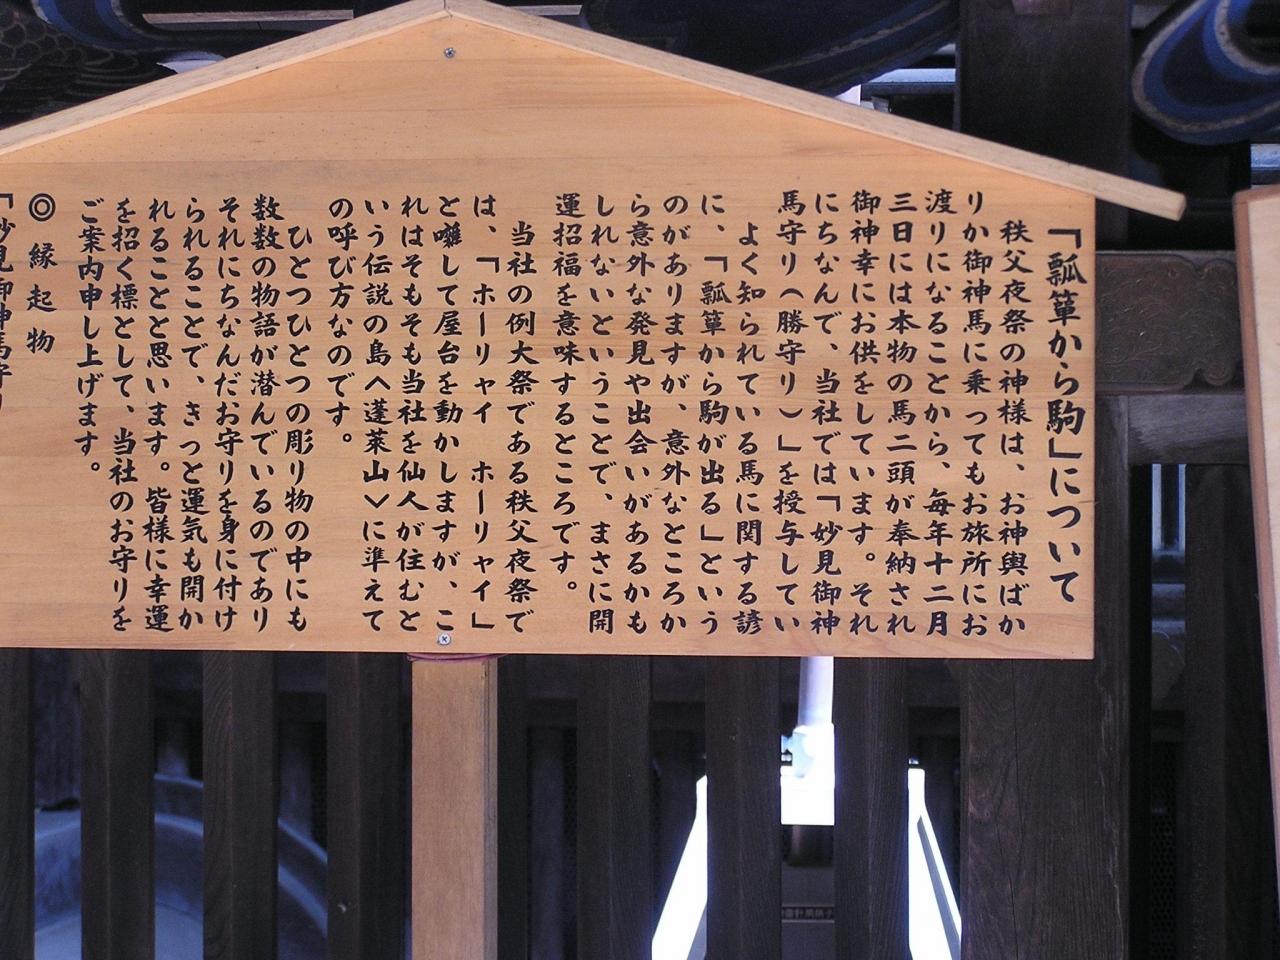 「瓢箪から駒」について
秩父夜祭の神様は、お神輿ばか
りか御神馬に乗ってもお旅所にお
渡りになることから、毎年十二月
三日には本物の馬二頭が奉納され
御神幸にお供をしています。それ
にちなんで、当社では「妙見御神
馬守り(勝守り)」を授与してい
よく知られている馬に関する諺
に、「瓢箪から駒が出る」という
のがありますが、意外なところか
ら意外な発見や出会いがあるかも
しれないということで、まさに開
運招福を意味するところです。
当社の例大祭である秩父夜祭で
は、「ホーリャイ ホーリャイ」
と囃して屋台を動かしますが、こ
れはそもそも当社を仙人が住むと
いう伝説の島<蓬莱山>に準えて
の呼び方なのです。
ひとつひとつの彫り物の中にも
数数の物語が潜んでいるのであり
それにちなんだお守りを身に付け
られることで、きっと運気も開か
れることと思います。皆様に幸運
を招く標として、当社のお守りを
ご案内申し上げます。
◎縁起物
「妙見御神馬守り